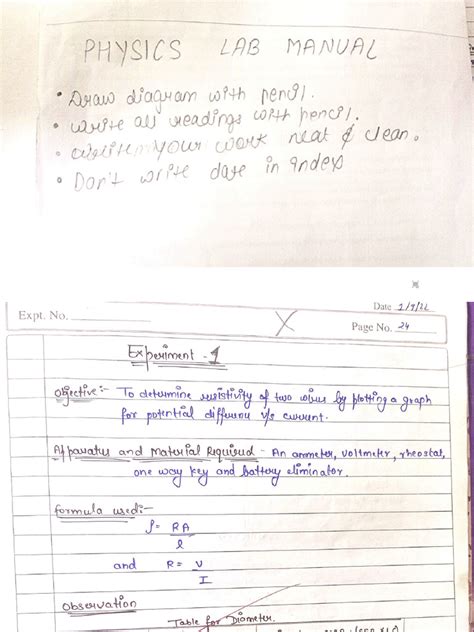 PHYSICS LAB MANUAL
• Draw diagram with pencil.
• Write all readings with pencil.
• Write your work neat & clean.
• Don't write date in index
Date 1/7/22
Expt. No.
Page No. 24
Experiment - 1
Objective:- To determine resistivity of two wires by plotting a graph
for potential difference v/s current.
Apparatus and Material Required - An ammeter, voltmeter, rheostat,
one way key and battery eliminator.
formula used:-
ρ = RA
l
and R = V
I
Observation
Table for Diameter.